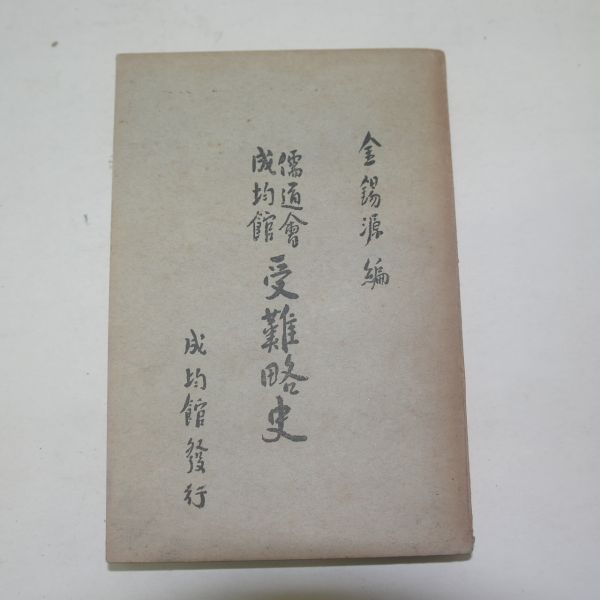 金錫源 編
儒道會
成均館
受難略史
成均館發行